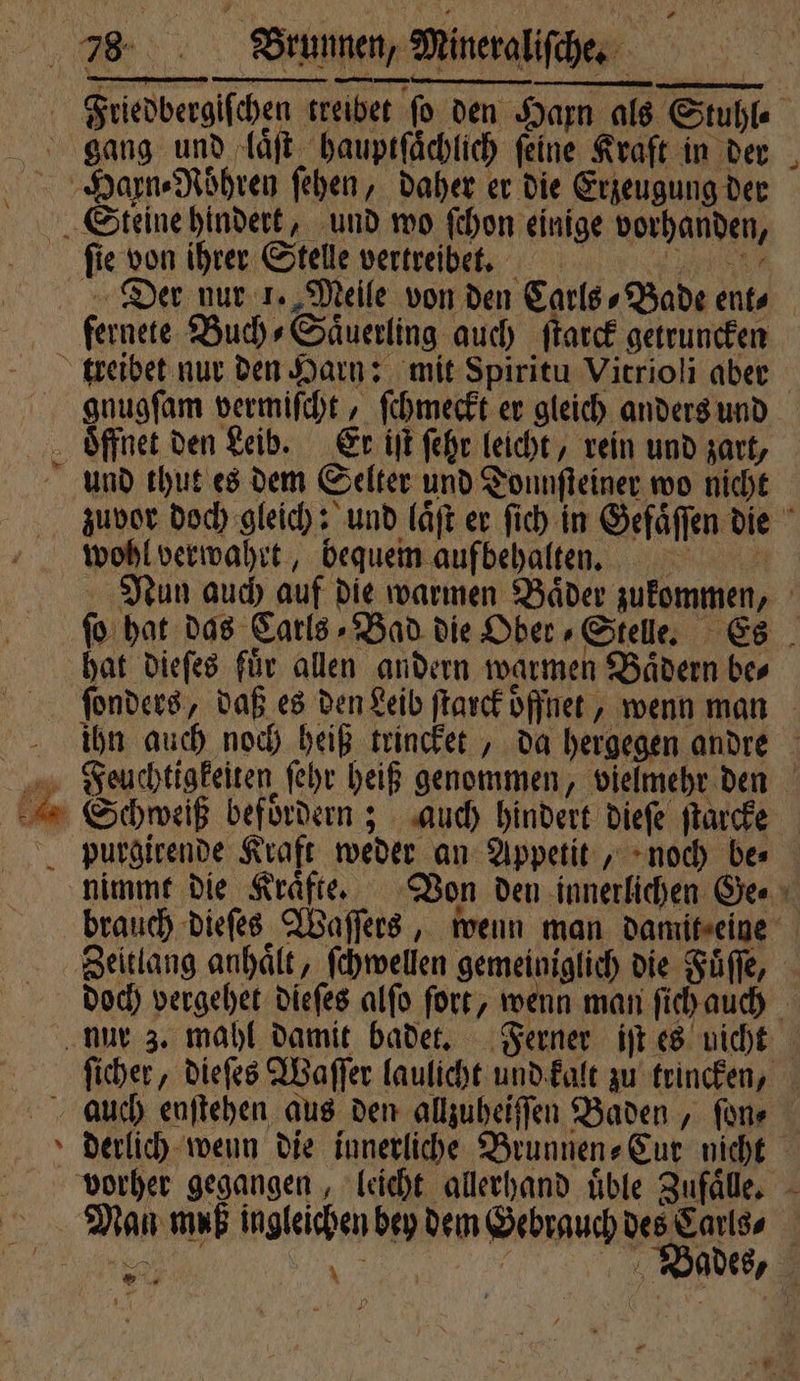 78 Brunnen, Mineraliſche.
Friedbergiſchen treibet ſo den Harn als Stuhl-
gang und låſt hauptſåchlich ſeine Kraft in der
Harn-Röhren ſehen, daher er die Erzeugung der
Steine hindert, und wo ſchon einige vorhanden,
ſie von ihrer Stelle vertreibet.
Der nur 1. Meile von den Carls-Bade ent-
fernete Buch-Såuerling auch ſtarck getruncken
treibet nur den Harn: mit Spiritu Vitrioli aber
gnugſam vermiſcht, ſchmeckt er gleich anders und
öffnet den Leib. Er iſt ſehr leicht, rein und zart,
und thut es dem Selter und Tonnſteiner wo nicht
zuvor doch gleich: und låſt er ſich in Gefåſſen die
wohl verwahrt, bequem aufbehalten.
Nun auch auf die warmen Båder zukommen,
ſo hat das Carls-Bad die Ober-Stelle. Es
hat dieſes für allen andern warmen Bådern be-
ſonders, daß es den Leib ſtarck öffnet, wenn man
ihn auch noch heiß trincket, da hergegen andre
Feuchtigkeiten ſehr heiß genommen, vielmehr den
Schweiß befördern; auch hindert dieſe ſtarcke
purgirende Kraft weder an Appetit, noch be-
nimmt die Kråfte. Von den innerlichen Ge-
brauch dieſes Waſſers, wenn man damit eine
Zeitlang anhålt, ſchwellen gemeiniglich die Füſſe,
doch vergehet dieſes alſo fort, wenn man ſich auch
nur 3. mahl damit badet. Ferner iſt es nicht
ſicher, dieſes Waſſer laulicht und kalt zu trincken,
auch enſtehen aus den allzuheiſſen Baden, ſon-
derlich wenn die innerliche Brunnen-Cur nicht
vorher gegangen, leicht allerhand üble Zufålle.
Man muß ingleichen bey dem Gebrauch des Carls-
Bades,